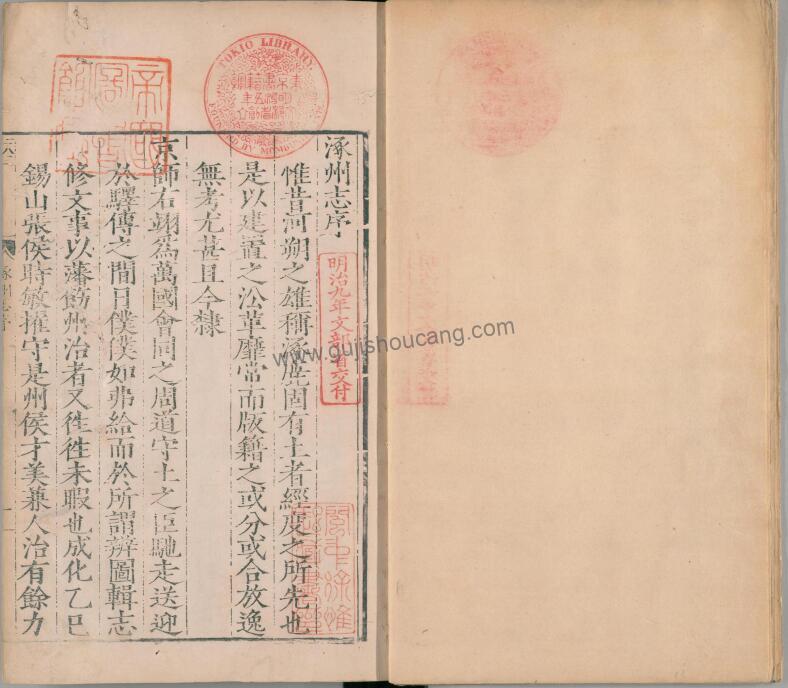 涿州志序
惟昔河朔之雄稱涿鹿固有土者經度之所先也
是以建置之㳂革靡常而版籍之或分或合放逸
無考尤甚且今隸
京師右翊爲萬國會同之周道守土之臣馳走送迎
於驛傳之間日僕僕如弗給而於所謂辨圖輯志
修文事以藩飭州治者又徃徃未暇也成化乙巳
錫山張侯時敏擢守是州侯才美兼人治有餘力
明治九年文部省交付
TOKIO LIBRARY.
FOUNDED BY MOMB
www.gujishoucang.com